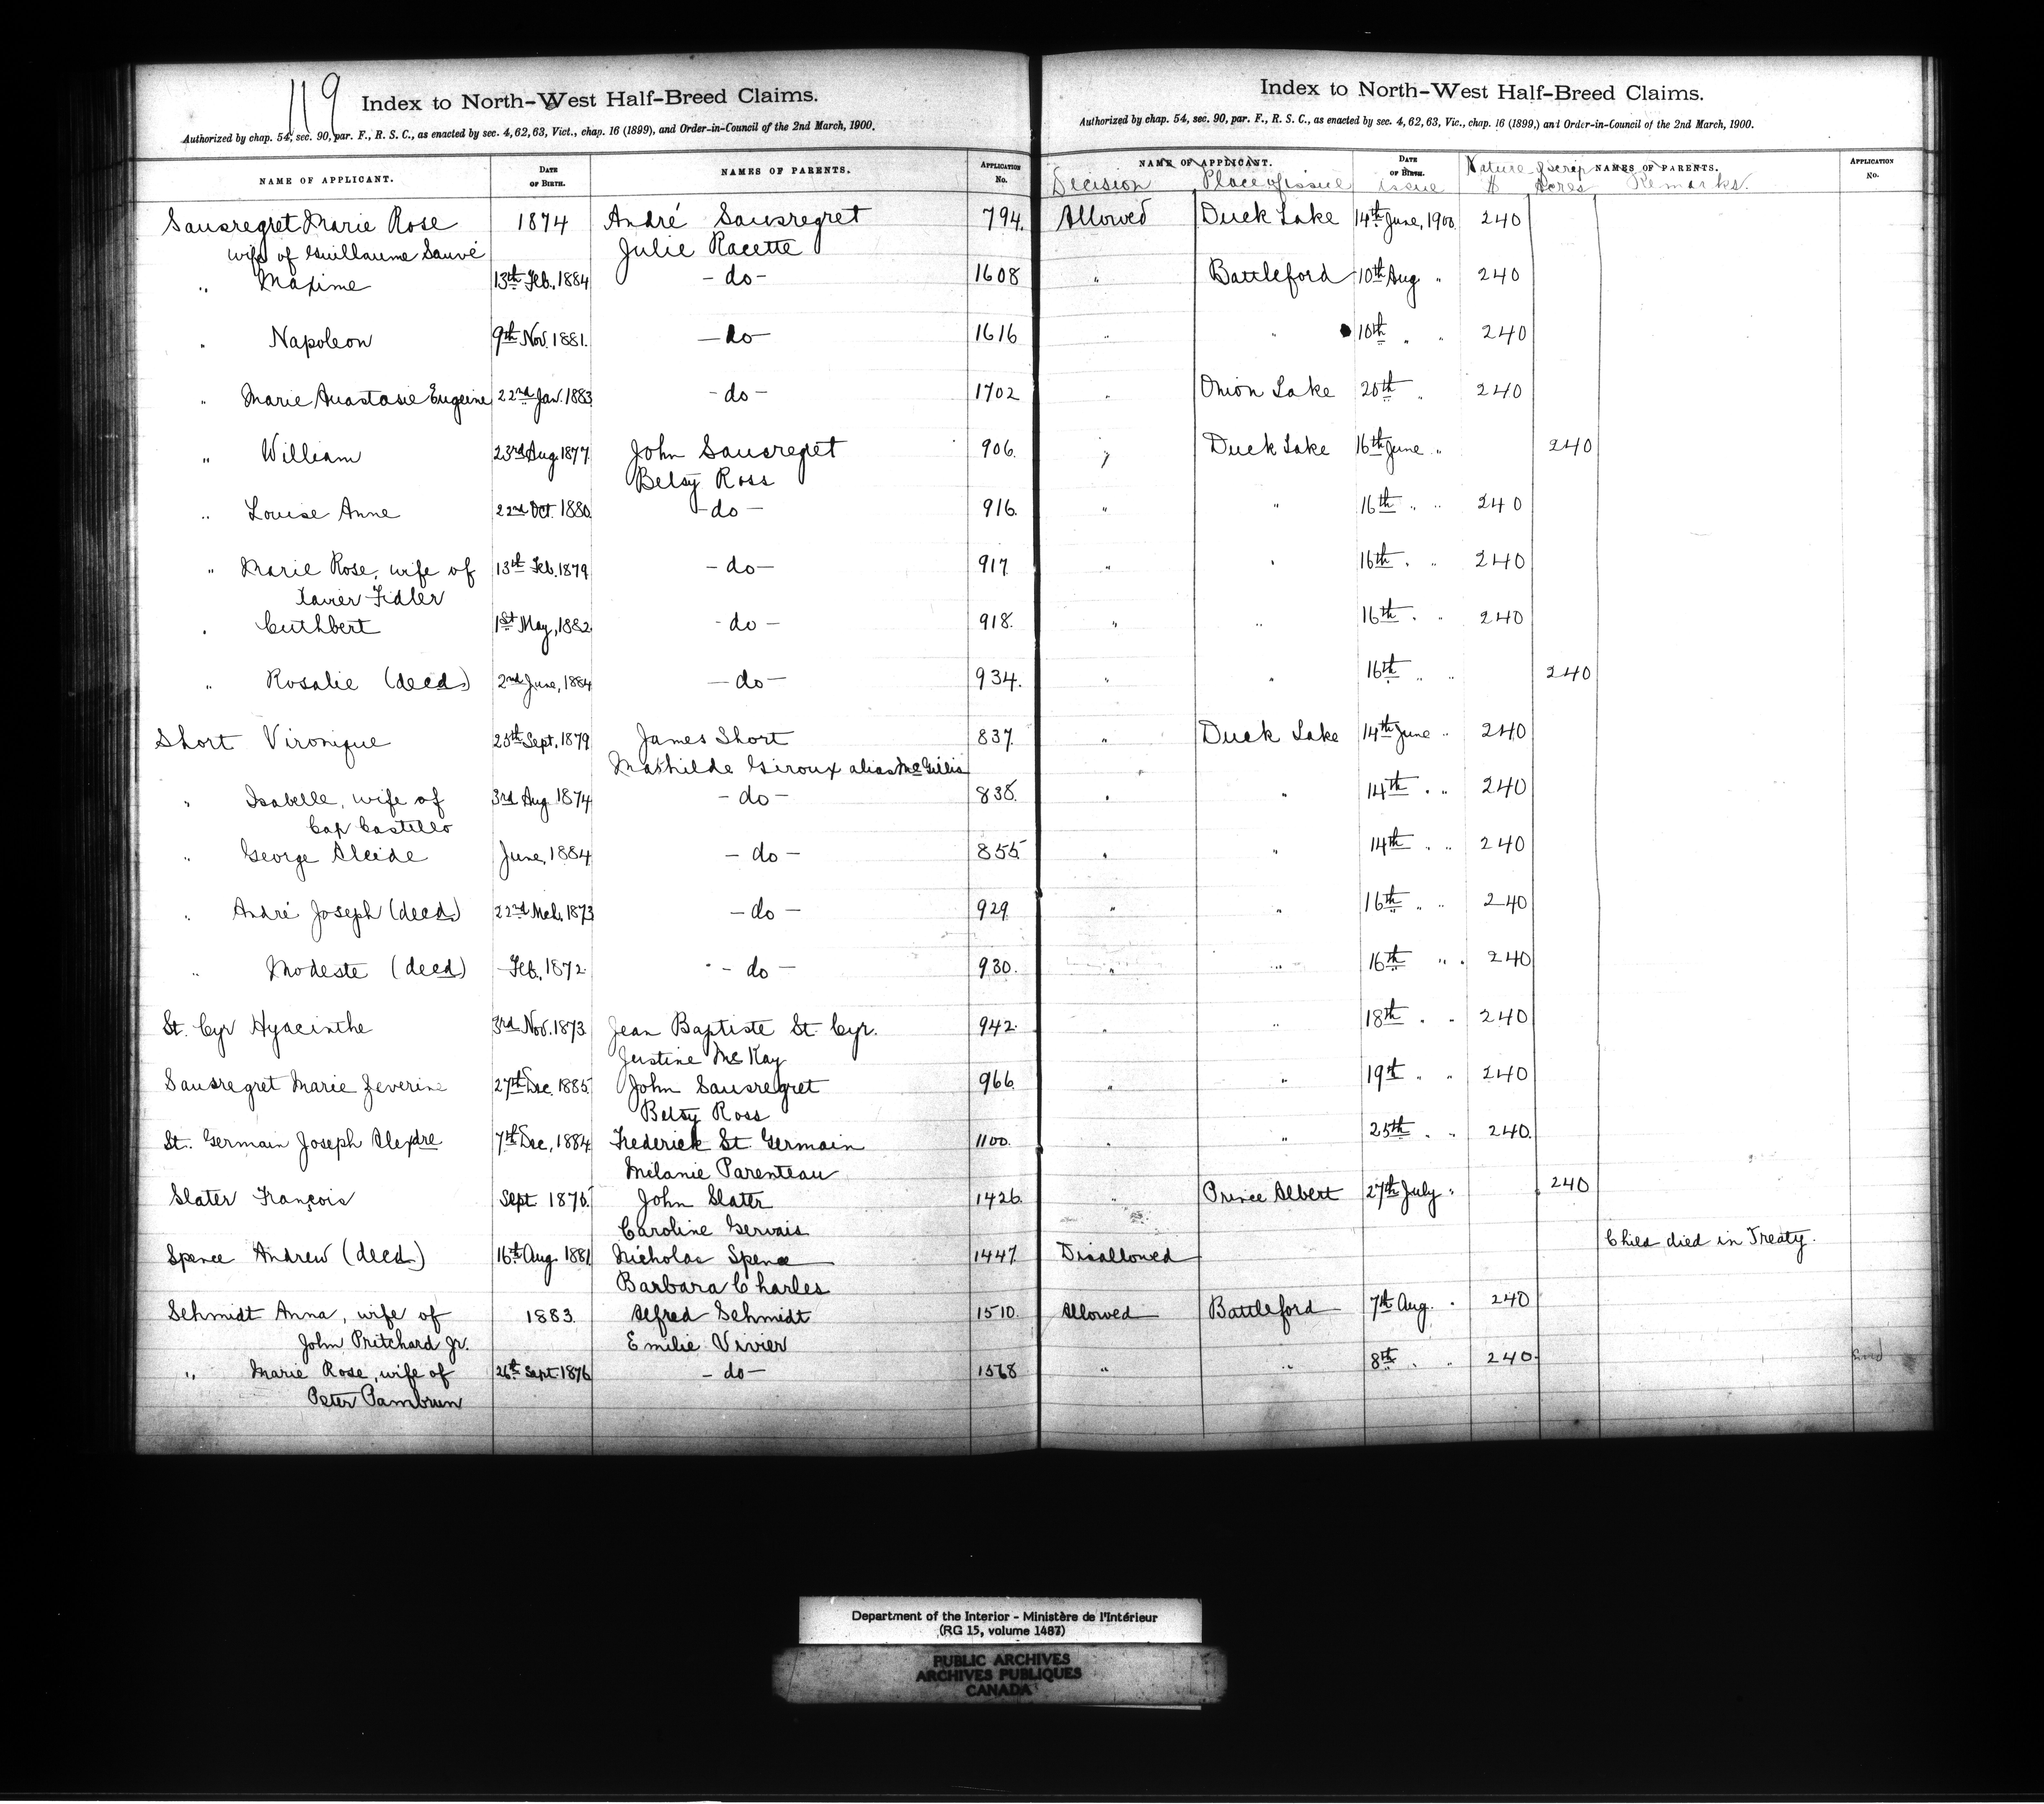 119
Index to North-West Half-Breed Claims.
Authorized by chap. 54, sec. 90, par. F., R. S. C., as enacted by sec. 4, 62, 63, Vict., chap. 16 (1899), and Order-in-Council of the 2nd March, 1900.
NAME OF APPLICANT. DATE OF BIRTH. NAMES OF PARENTS. APPLICATION No.
Sansregret Marie Rose 1874 André Sansregret 794.
wife of Guillaume Sauvé Julie Racette
" Maxime 13th Feb. 1884 - do - 1608
" Napoleon 9th Nov. 1881. - do - 1616
" Marie Anastasie Eugeine 22nd Jan. 1883 - do - 1702
" William 23rd Aug. 1877 John Sansregret 906.
Betsy Ross
" Louise Anne 22nd Oct. 1880. - do - 916.
" Marie Rose, wife of 13th Feb. 1879 - do - 917
Xavier Fidler
" Cuthbert 1st May, 1882. - do - 918.
" Rosalie (decd.) 2nd June, 1884 - do - 934.
Short Vironique 25th Sept. 1879 James Short 837.
Mathilde Giroux alias McGillis
" Isabelle, wife of 3rd Aug. 1874 - do - 838.
Cap Castillo
" George Alcide June, 1884 - do - 855
" André Joseph (decd.) 22nd Mch. 1873 - do - 929
" Modeste (decd) Feb. 1872. - do - 930.
St. Cyr Hyacinthe 3rd Nov. 1873 Jean Baptiste St. Cyr. 942.
Justine McKay
Sansregret Marie Zeverine 27th Dec. 1885. John Sansregret 966.
Betsy Ross
St. Germain Joseph Alexdre 7th Dec, 1884 Frederick St. Germain 1100.
Mélanie Parenteau
Slater François Sept 1875. John Slater 1426.
Caroline Gervais
Spence Andrew (decd.) 16th Aug. 1881 Nicholas Spence 1447.
Barbara Charles
Schmidt Anna, wife of 1883. Alfred Schmidt 1510.
John Pritchard Jr. Emilie Vivier
" Marie Rose, wife of 26th Sept. 1876 - do - 1568
Peter Pambrun
Index to North-West Half-Breed Claims.
Authorized by chap. 54, sec. 90, par. F., R. S. C., as enacted by sec. 4, 62, 63, Vic., chap. 16 (1899,) and Order-in-Council of the 2nd March, 1900.
NAME OF APPLICANT. DATE OF BIRTH. NAMES OF PARENTS. APPLICATION No.
Decision Place of issue issue Nature of scrip $ Acres Remarks.
Allowed Duck Lake 14th June, 1900 240
" Battleford 10th Aug " 240
" " 10th " " 240
" Onion Lake 20th " 240
" Duck Lake 16th June " 240
" " 16th " " 240
" " 16th " " 240
" " 16th " " 240
" " 16th " " 240
" Duck Lake 14th June " 240
" " 14th " " 240
" " 14th " " 240
" " 16th " " 240
" " 16th " " 240
" " 18th " " 240
" " 19th " " 240
" " 25th " " 240.
" Prince Albert 27th July " 240
Disallowed Child died in Treaty.
Allowed Battleford 7th Aug. " 240
" " 8th " " 240.
Department of the Interior - Ministère de l'Intérieur
(RG 15, volume 1487)
PUBLIC ARCHIVES
ARCHIVES PUBLIQUES
CANADA